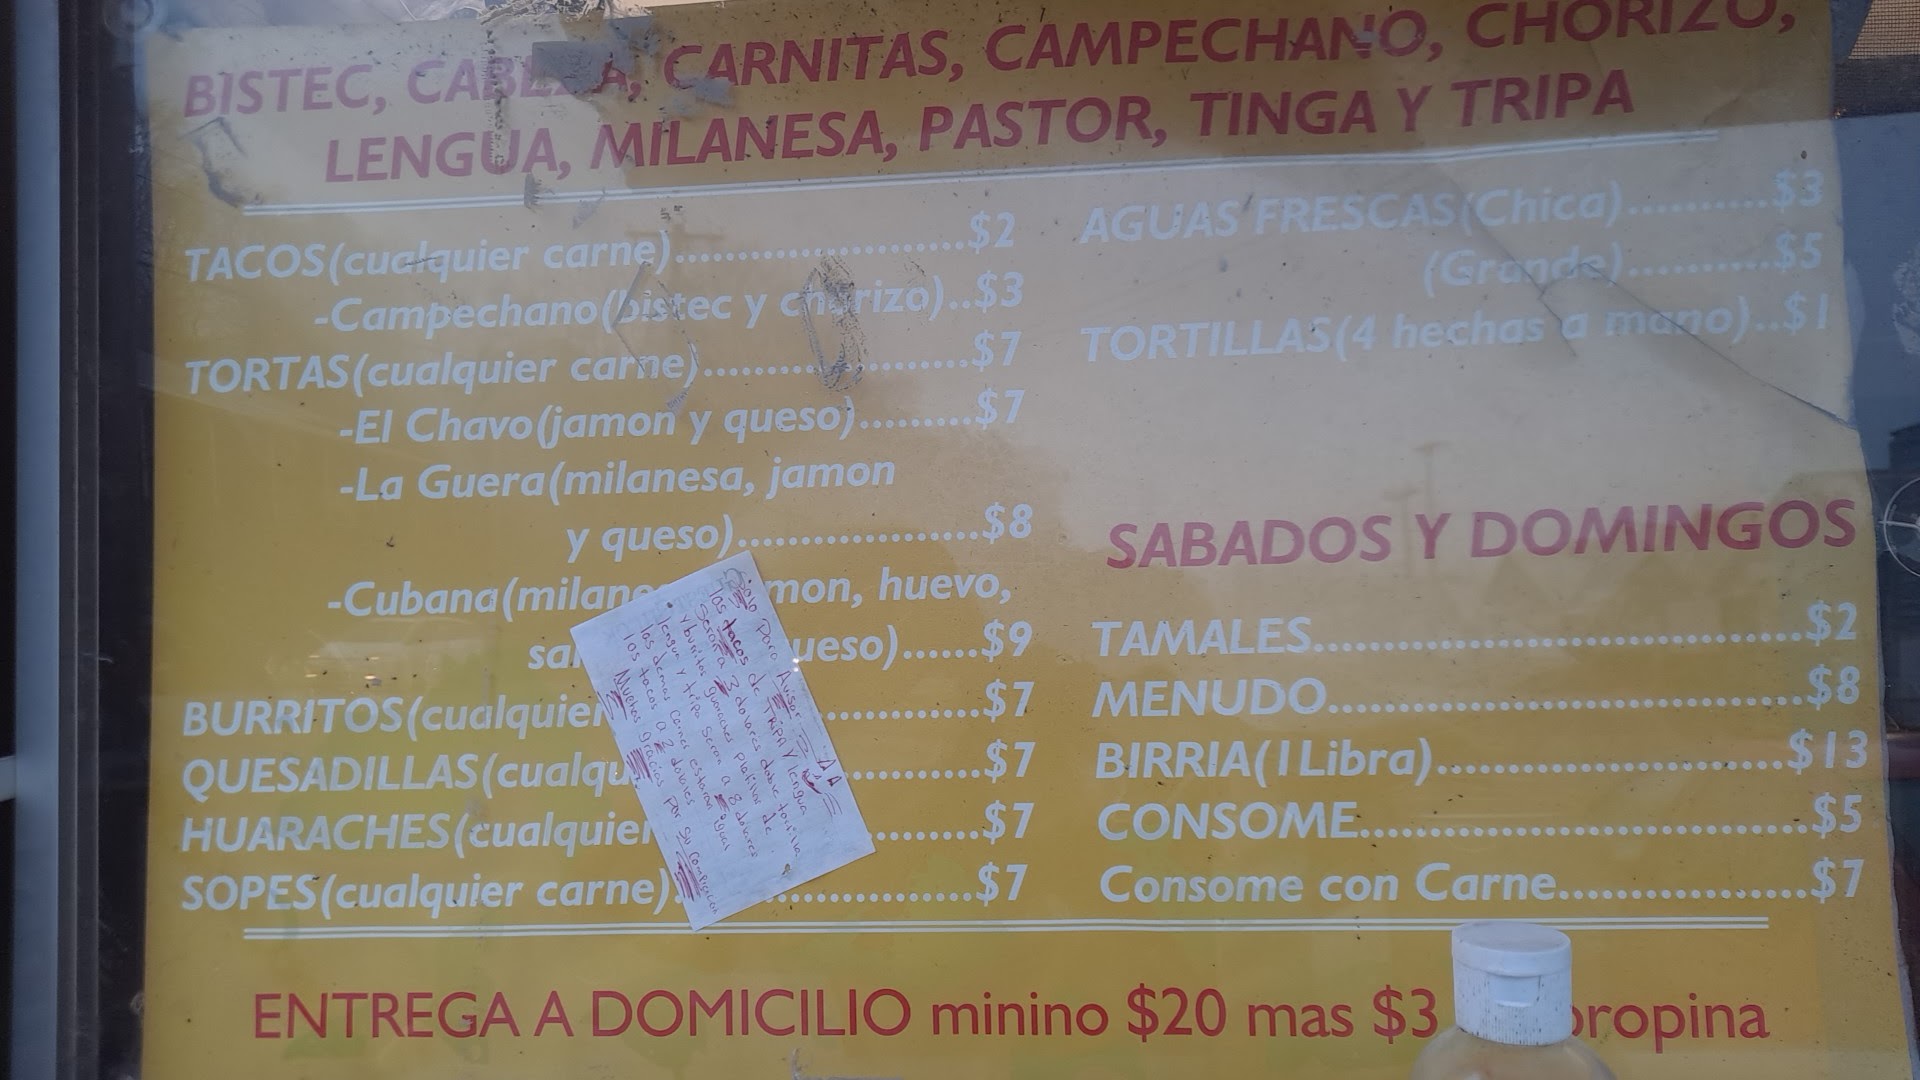 BISTEC, CABEZA, CARNITAS, CAMPECHANO, CHORIZO,
LENGUA, MILANESA, PASTOR, TINGA Y TRIPA
TACOS(cualquier carne)....................$2
-Campechano(bistec y chorizo)..$3
TORTAS(cualquier carne)..................$7
-El Chavo(jamon y queso).........$7
-La Guera(milanesa, jamon
y queso)...................$8
-Cubana(milane mon, huevo,
sal ueso)......$9
BURRITOS(cualquier ............$7
QUESADILLAS(cualqu ..........$7
HUARACHES(cualquier .........$7
SOPES(cualquier carne). ..............$7
AGUAS FRESCAS(Chica)..........$3
(Grande)..........$5
TORTILLAS(4 hechas a mano)..$1
SABADOS Y DOMINGOS
TAMALES...................................$2
MENUDO..................................$8
BIRRIA(1Libra)........................$13
CONSOME................................$5
Consome con Carne.................$7
Solo para Avisar
los tacos de TRIPA Y lengua
Seran a 3 dolores doble tortilla
y burritos guaraches platillos de
lengua y tripa sera a 8 dolares
las demas carnes estaran igual
los tacos a 2 dolares
Muchas gracias por su
ENTREGA A DOMICILIO minino $20 mas $3 propina